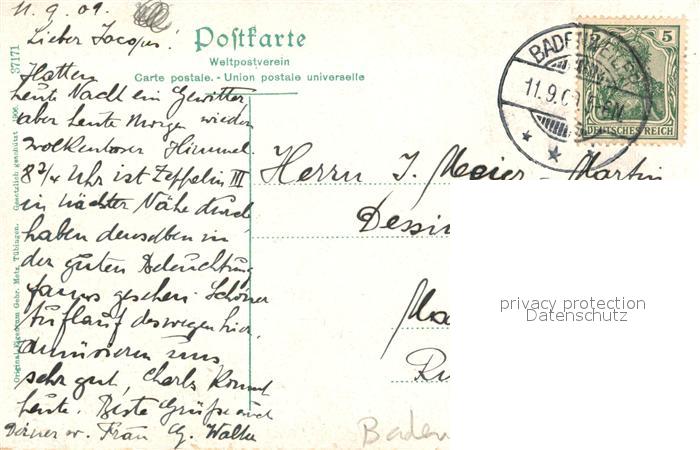 11. 9. 09.
Lieber Jacques!
Hatten
heute Nacht ein Gewitter
aber heute Morgen wieder
wolkenloser Himmel.
8 3/4 Uhr ist Zeppelin III
in nächster Nähe durch
haben denselben in
der guten Beleuchtung
famos gesehen. Schöner
Auflauf deswegen hier.
amüsieren uns
sehr gut, Charles kommt
heute. Beste Grüsse auch
Deiner w. Frau G.
Postkarte
Weltpostverein
Carte postale. - Union postale universelle
37171
Gesetzlich geschützt 1906.
Original Eigentum Gebr. Metz, Tübingen.
BADENWEILER
11.9.09. 5-6N
5
DEUTSCHES REICH
Herrn J. Meier-Martin
Dessin
Baden
privacy protection
Datenschutz